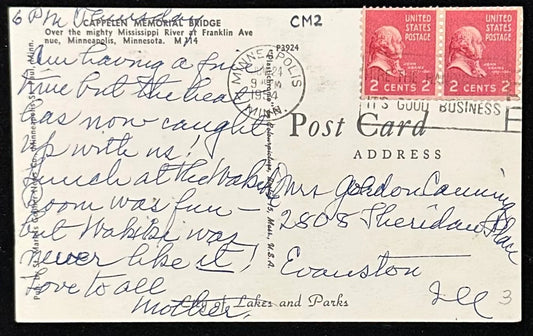 6 Pm
CAPPELEN MEMORIAL BRIDGE
Over the mighty Mississippi River at Franklin Ave
nue, Minneapolis, Minnesota. M 114
CM2
P3924
Am having a fine
time but the heat
has now caught
up with us!
Lunch at the
Room was fun –
but was
never like it!
Love to all
Mother.
MINNEAPOLIS
1954
MINN.
UNITED
STATES
POSTAGE
JOHN ADAMS
2 CENTS 2
UNITED
STATES
POSTAGE
JOHN ADAMS
2 CENTS 2
IT'S GOOD BUSINESS
Post Card
ADDRESS
Mrs Gordon Canning
2808 Sheridan Place
Evanston
Ill
City of Lakes and Parks
3